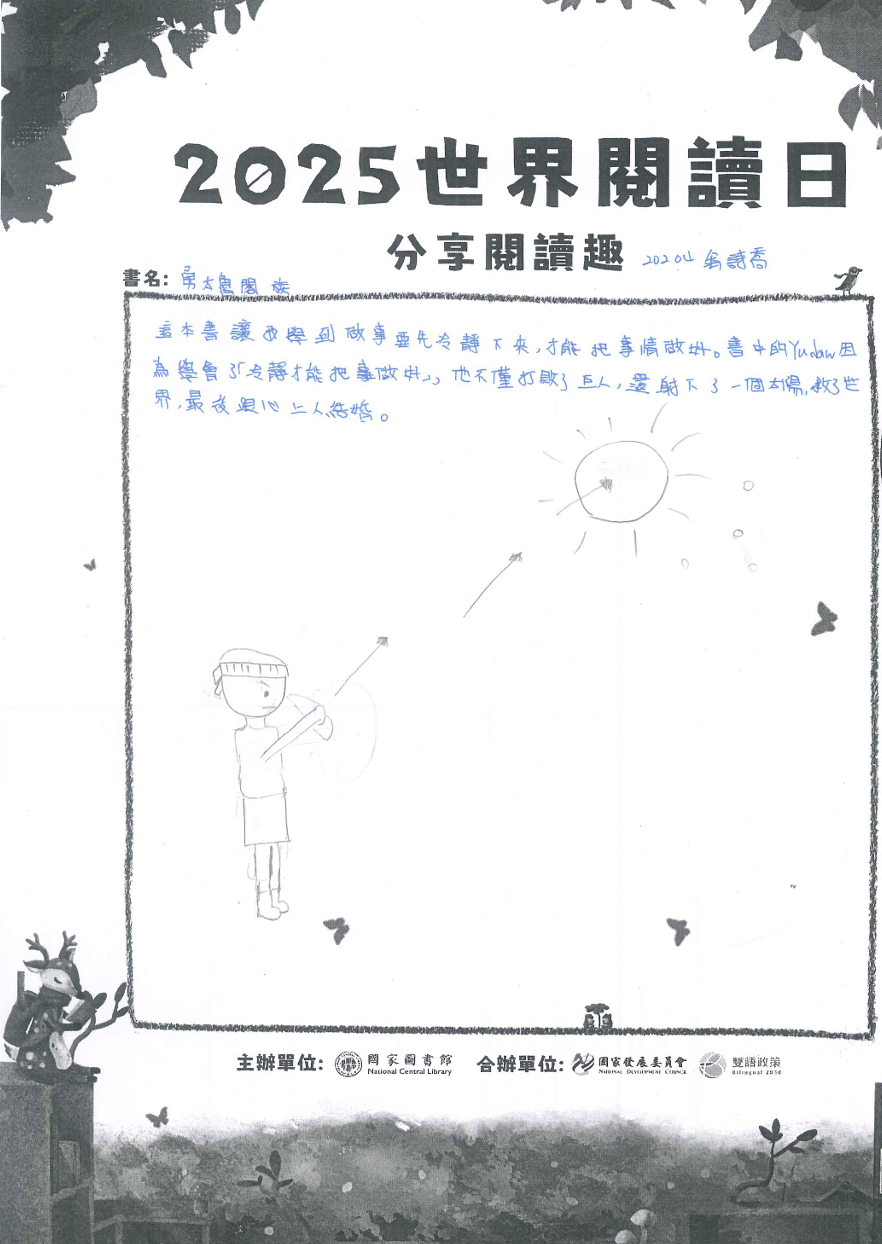 2025世界閱讀日
分享閱讀趣 20204 吳詩喬
書名: 勇士魯閣族
這本書讓我學到做事要先冷靜下來,才能把事情做好。書中的Yudaw因
為學會了「冷靜才能把事做好」,他不僅打敗了巨人,還射下了一個太陽,救了世
界,最後跟心上人結婚。
主辦單位: 國家圖書館 National Central Library 合辦單位: 國家發展委員會 NATIONAL DEVELOPMENT COUNCIL 雙語政策 Bilingual 2030